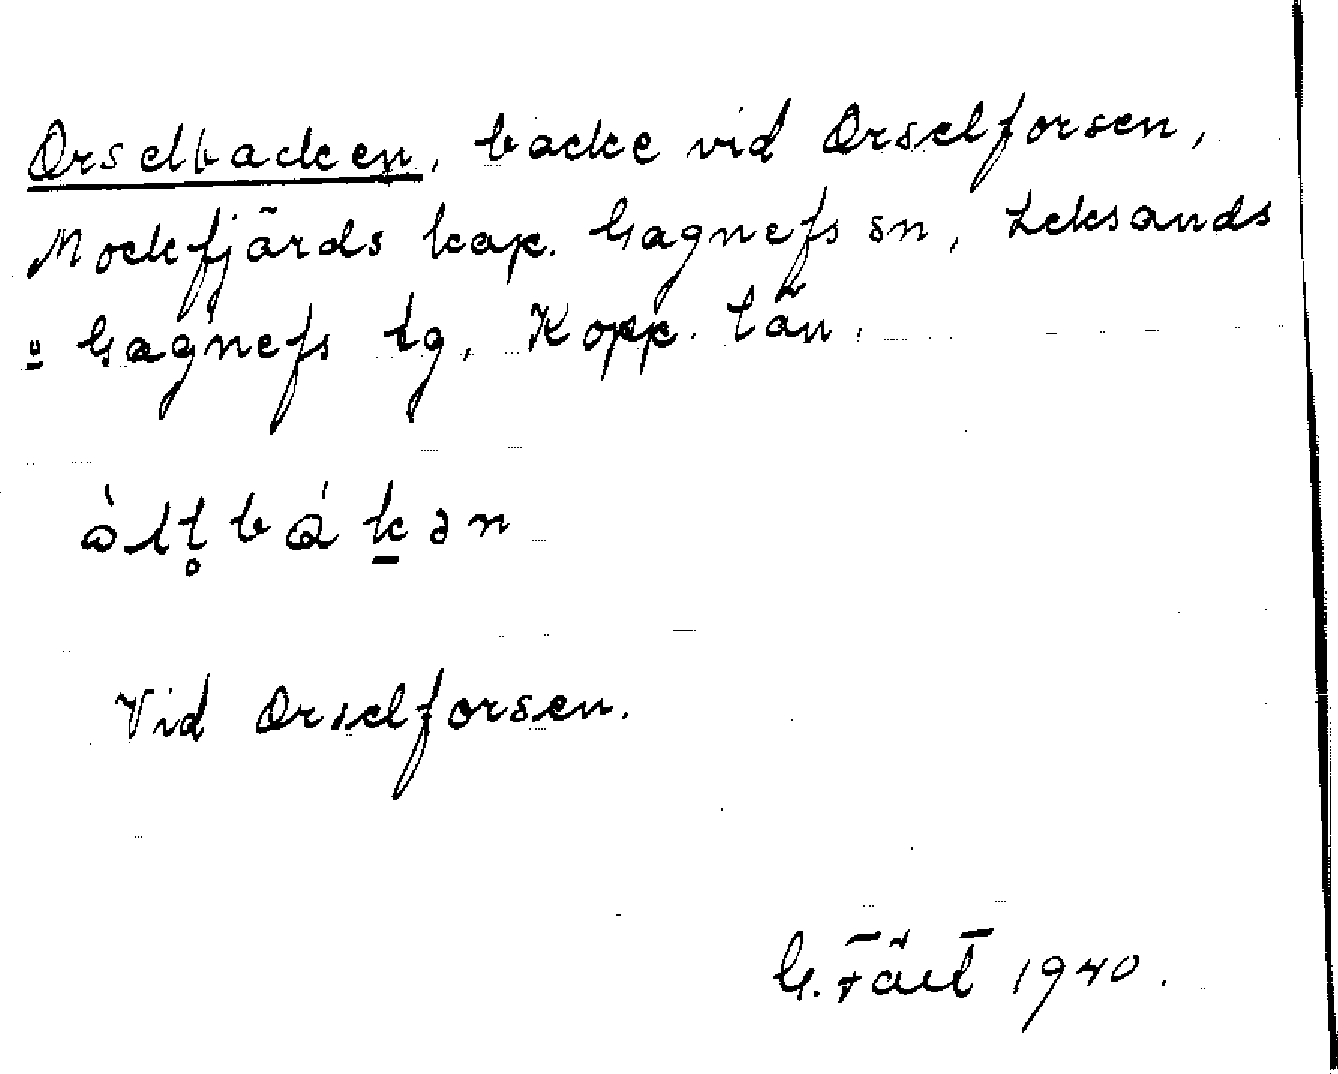 Orselbacken, backe vid Orselforsen,
Mockfjärds kap. Gagnefs sn, Leksands
o Gagnefs tg, Kopp. län.
Vid Orselforsen.
G. 1940.